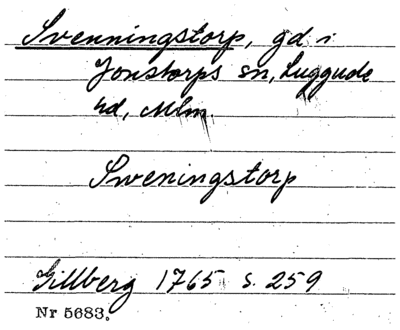 Svenningstorp, gd i
Jonstorps sn, Luggude
hd, Mlm.
Sweningstorp
Gillberg 1765 s. 259
Nr 5683.